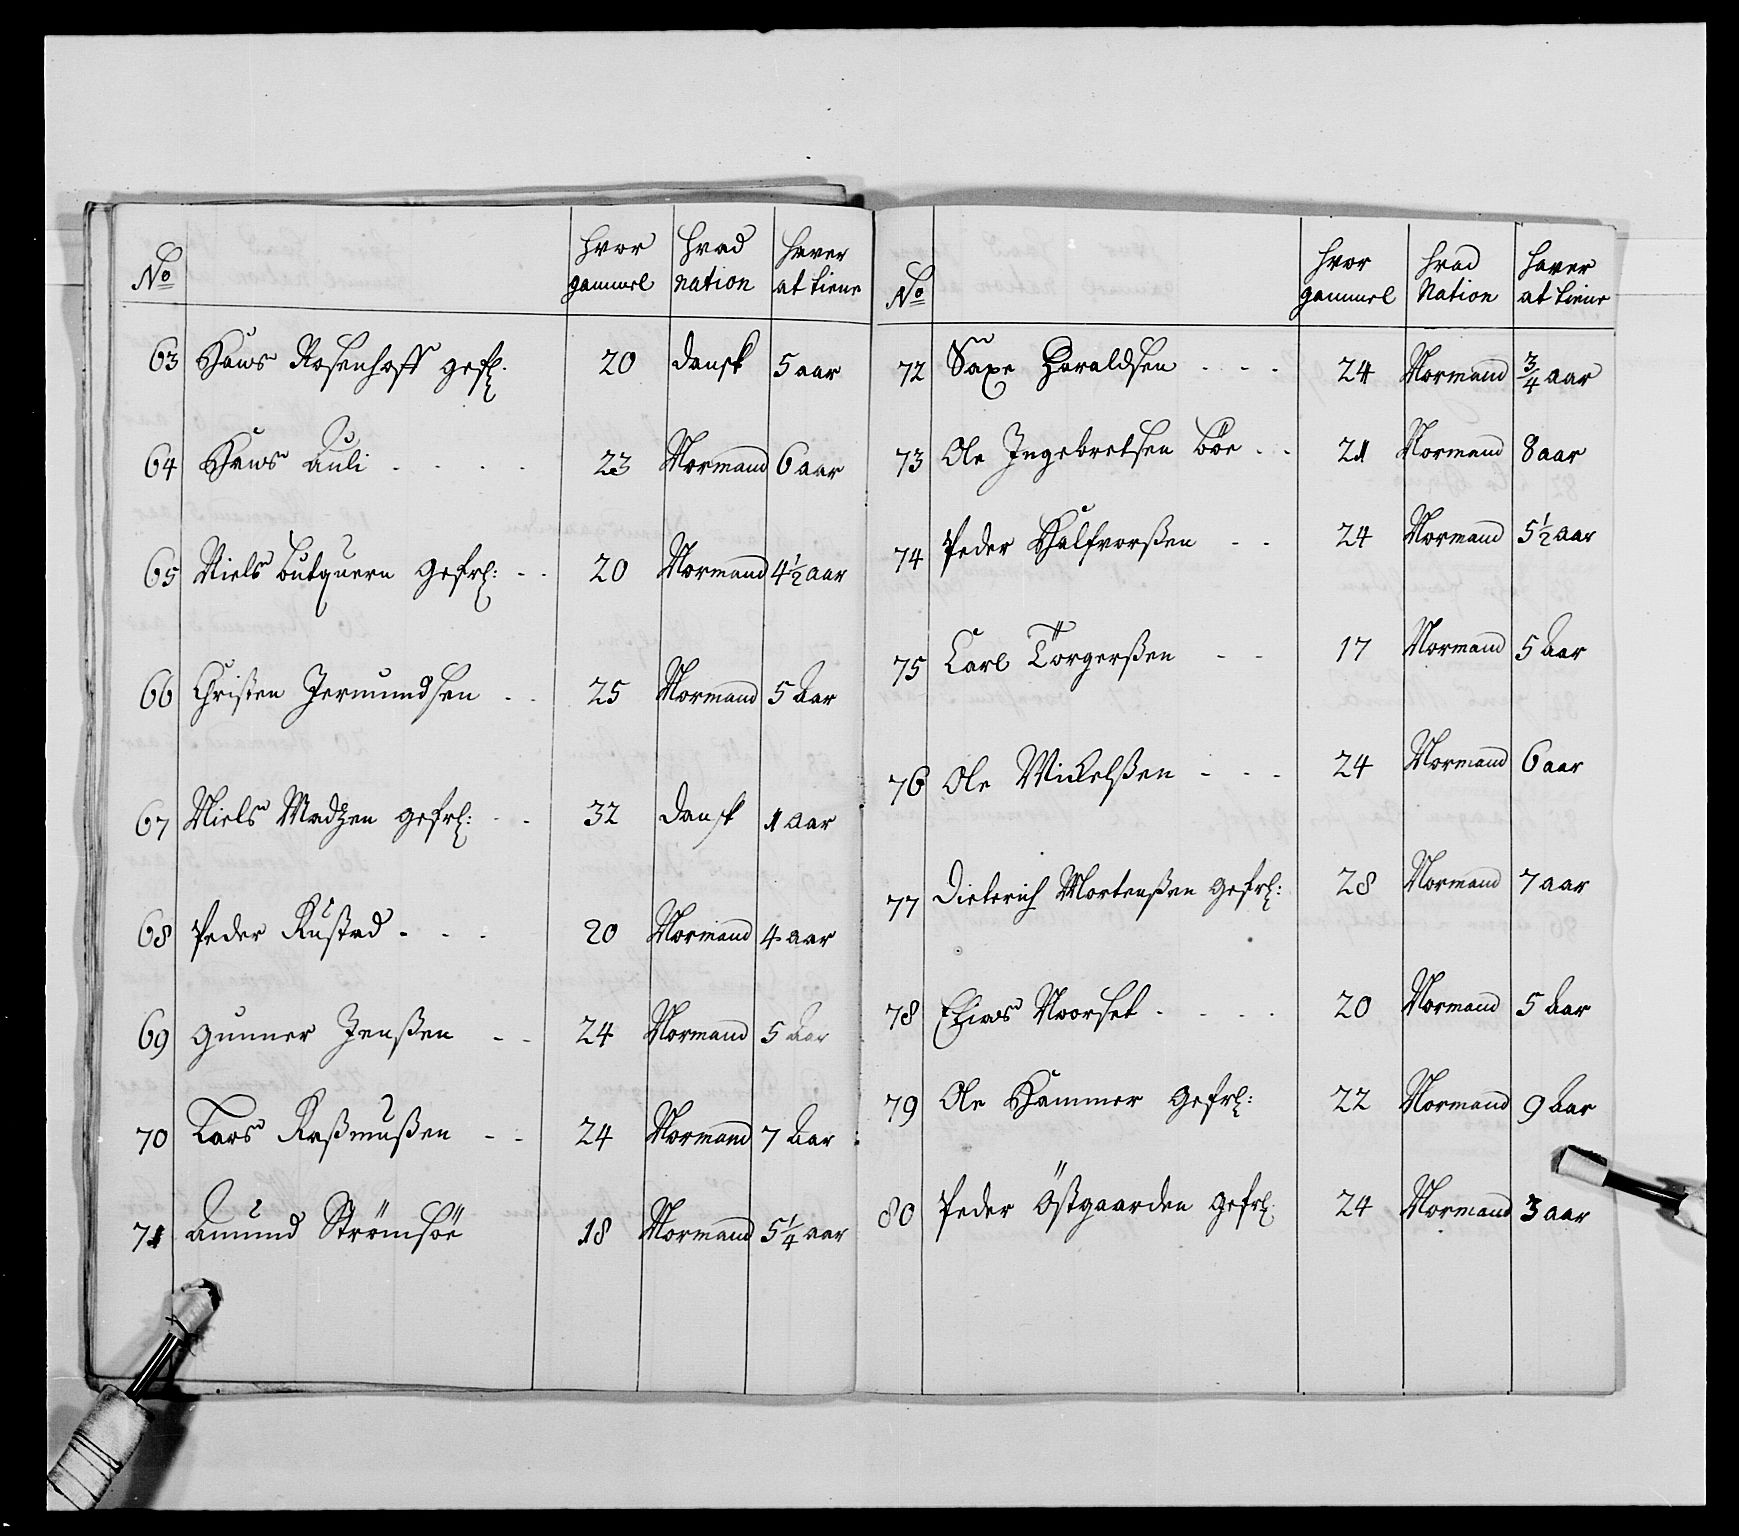 No hvor gammel hvad nation haver at tiene
63 Hans Rosenhoff gefl: 20 dansk 5 aar
64 Hans Auli - - - - 23 Normand 6 aar
65 Niels butquern gefrl: - - 20 Normand 4½ aar
66 Christen Jermundsen - - 25 Normand 5 Aar
67 Niels Madtzen gefrl: - - 32 dansk 1 aar
68 Peder Rustad - - - 20 Normand 4 aar
69 gunner Jenßen - - 24 Normand 5 Aar
70 Lars Raßmußen - - 24 Normand 7 Aar
71 Amund Strömsöe 18 Normand 5¼ aar
No hvor gammel hvad Nation haver at tiene
72 Saxe Haraldsen - - - 24 Normand ¾ aar
73 Ole Ingebretsen böe - - 21 Normand 8 aar
74 Peder Halfvorßen - - 24 Normand 5½ aar
75 Carl Törgerßen - - 17 Normand 5 Aar
76 Ole Mickelßen - - - 24 Normand 6 aar
77 Dieterich Mortenßen gefrl: 28 Normand 7 aar
78 Elias Noorset - - - - 20 Normand 5 Aar
79 Ole Hammer gefrl: 22 Normand 9 Aar
80 Peder Östgaarden gefrl: 24 Normand 3 aar